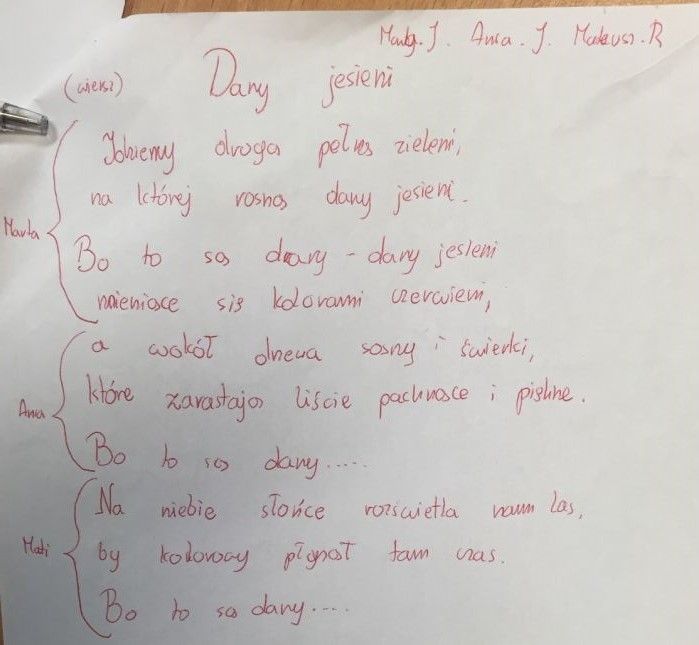 Marty. J. Ania. J. Mateusz. R
(wiersz) Dary jesieni
Idziemy drogą pełną zieleni,
na której rosną dany jesieni.
Marta
Bo to są dary - dany jesieni
mieniące się kolorami czerwieni,
a wokół drzewa sosny i świerki,
które zarastają liście pachnące i piękne.
Ania
Bo to są dany.....
Na niebie słońce rozświetla nam las,
Mati
by kolorowy płynął tam czas.
Bo to są dany....